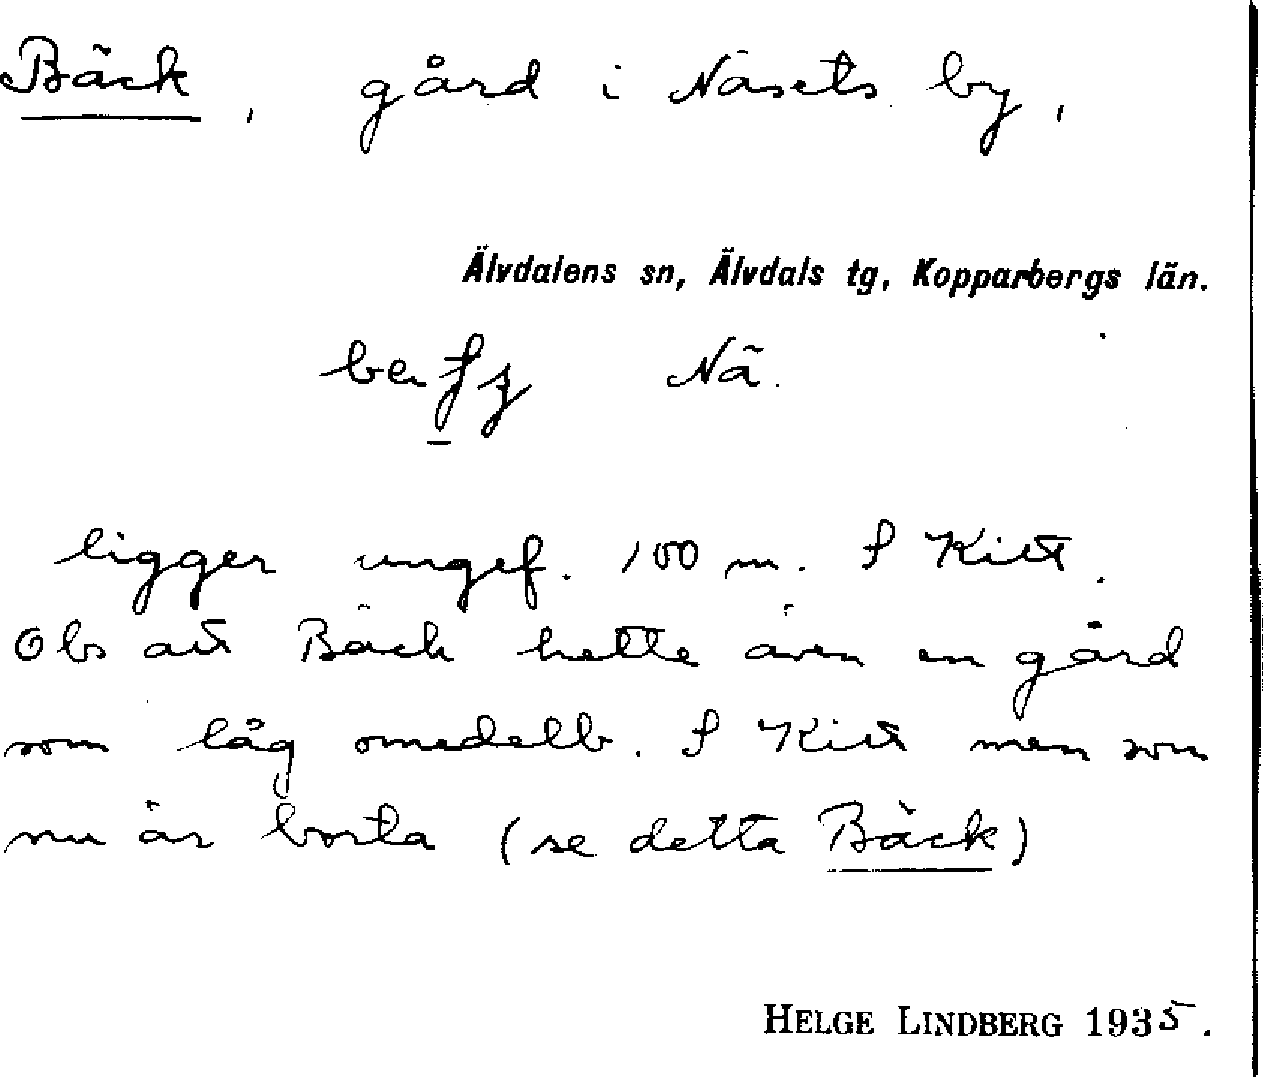 Bäck, gård i Näsets by,
Älvdalens sn, Älvdals tg, Kopparbergs län.
Nä.
ligger ungef. 100 m. S Kitt.
Obs att Bäck hette även en gård
som låg omedelb. S Kitt men som
nu är borta (se detta Bäck)
HELGE LINDBERG 1935.